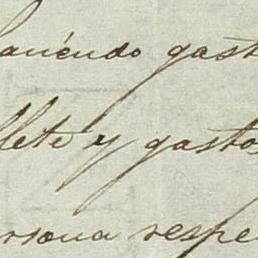 haciendo gast
flete y gastos
ersona respe